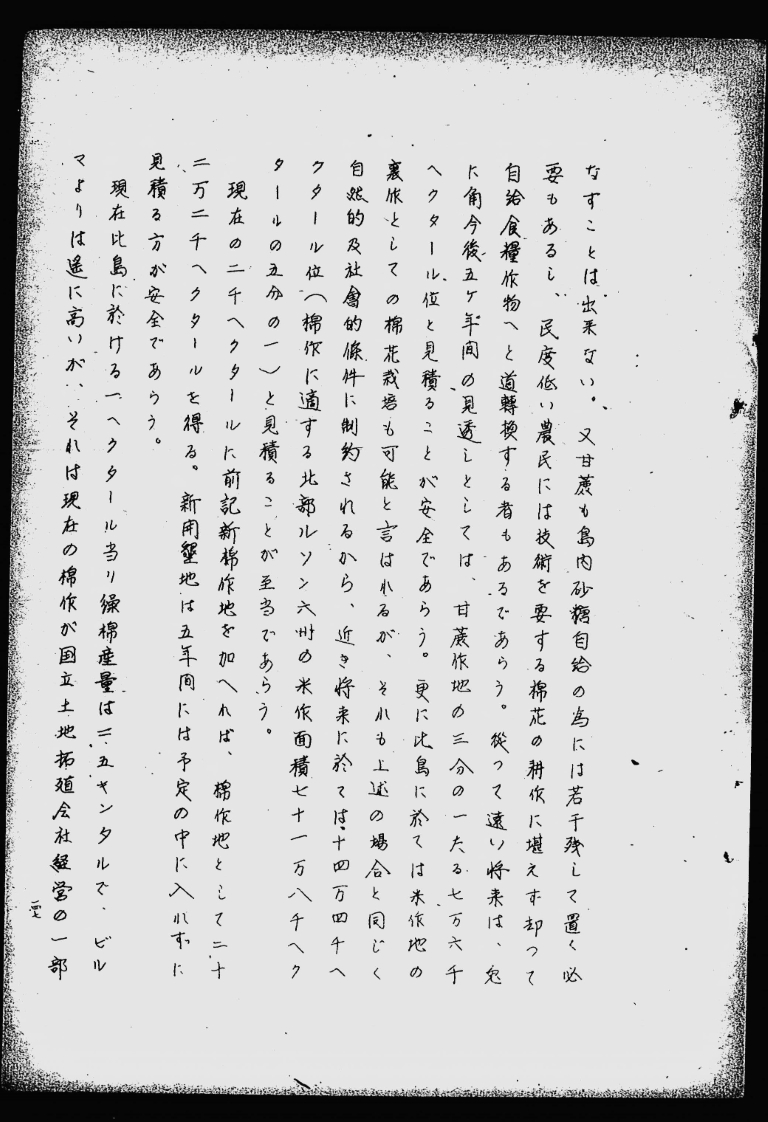 なすことは出来ない。又甘蔗も島内砂糖自給の為には若干残して置く必
要もあるし、民度低い農民には技術を要する棉花の耕作に堪えず却つて
自給食糧作物へと道轉換する者もあるであらう。從つて遠い将来は、兎
に角今後五ケ年間の見透しとしては、甘蔗作地の三分の一たる七万六千
ヘクタール位と見積ることが安全であらう。更に比島に於ては米作地の
裏作としての棉花栽培も可能と言はれるが、それも上述の場合と同じく
自然的及社會的條件に制約されるから、近き将来に於ては十四万四千ヘ
クタール位（棉作に適する北部ルソン六州の米作面積七十一万八千ヘク
タールの五分の一）と見積ることが至当であらう。
現在の二千ヘクタールに前記新棉作地を加へれば、棉作地として二十
二万二千ヘクタールを得る。新開墾地は五年間には予定の中に入れずに
見積る方が安全であらう。
現在比島に於ける一ヘクタール当り繰棉産量は二.五キンタルで、ビル
マよりは遙に高いが、それは現在の棉作が国立土地拓殖会社経営の一部